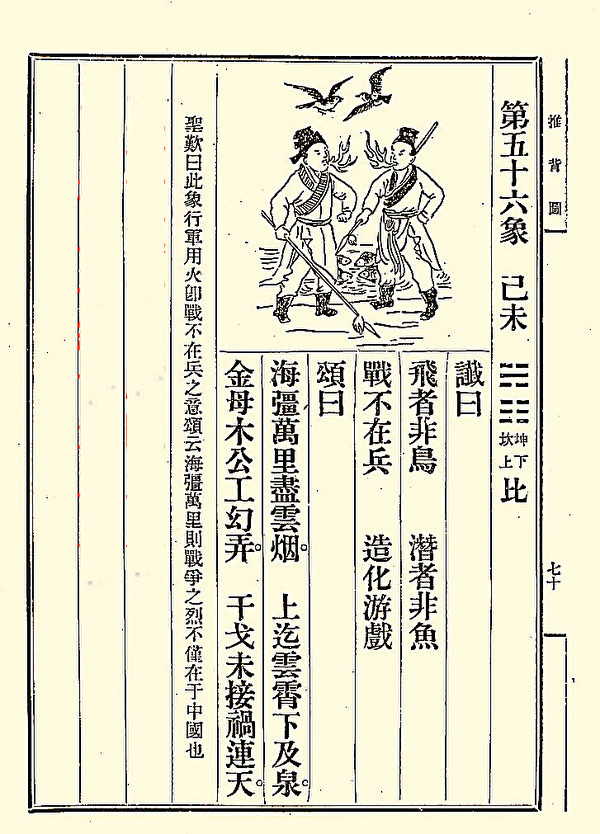 推背圖
七十
第五十六象 己未 坤下坎上 比
讖曰
飛者非鳥 潛者非魚
戰不在兵 造化游戲
頌曰
海疆萬里盡雲烟。上迄雲霄下及泉。
金母木公工幻弄。干戈未接禍連天。
聖歎曰此象行軍用火卽戰不在兵之意頌云海疆萬里則戰爭之烈不僅在于中國也